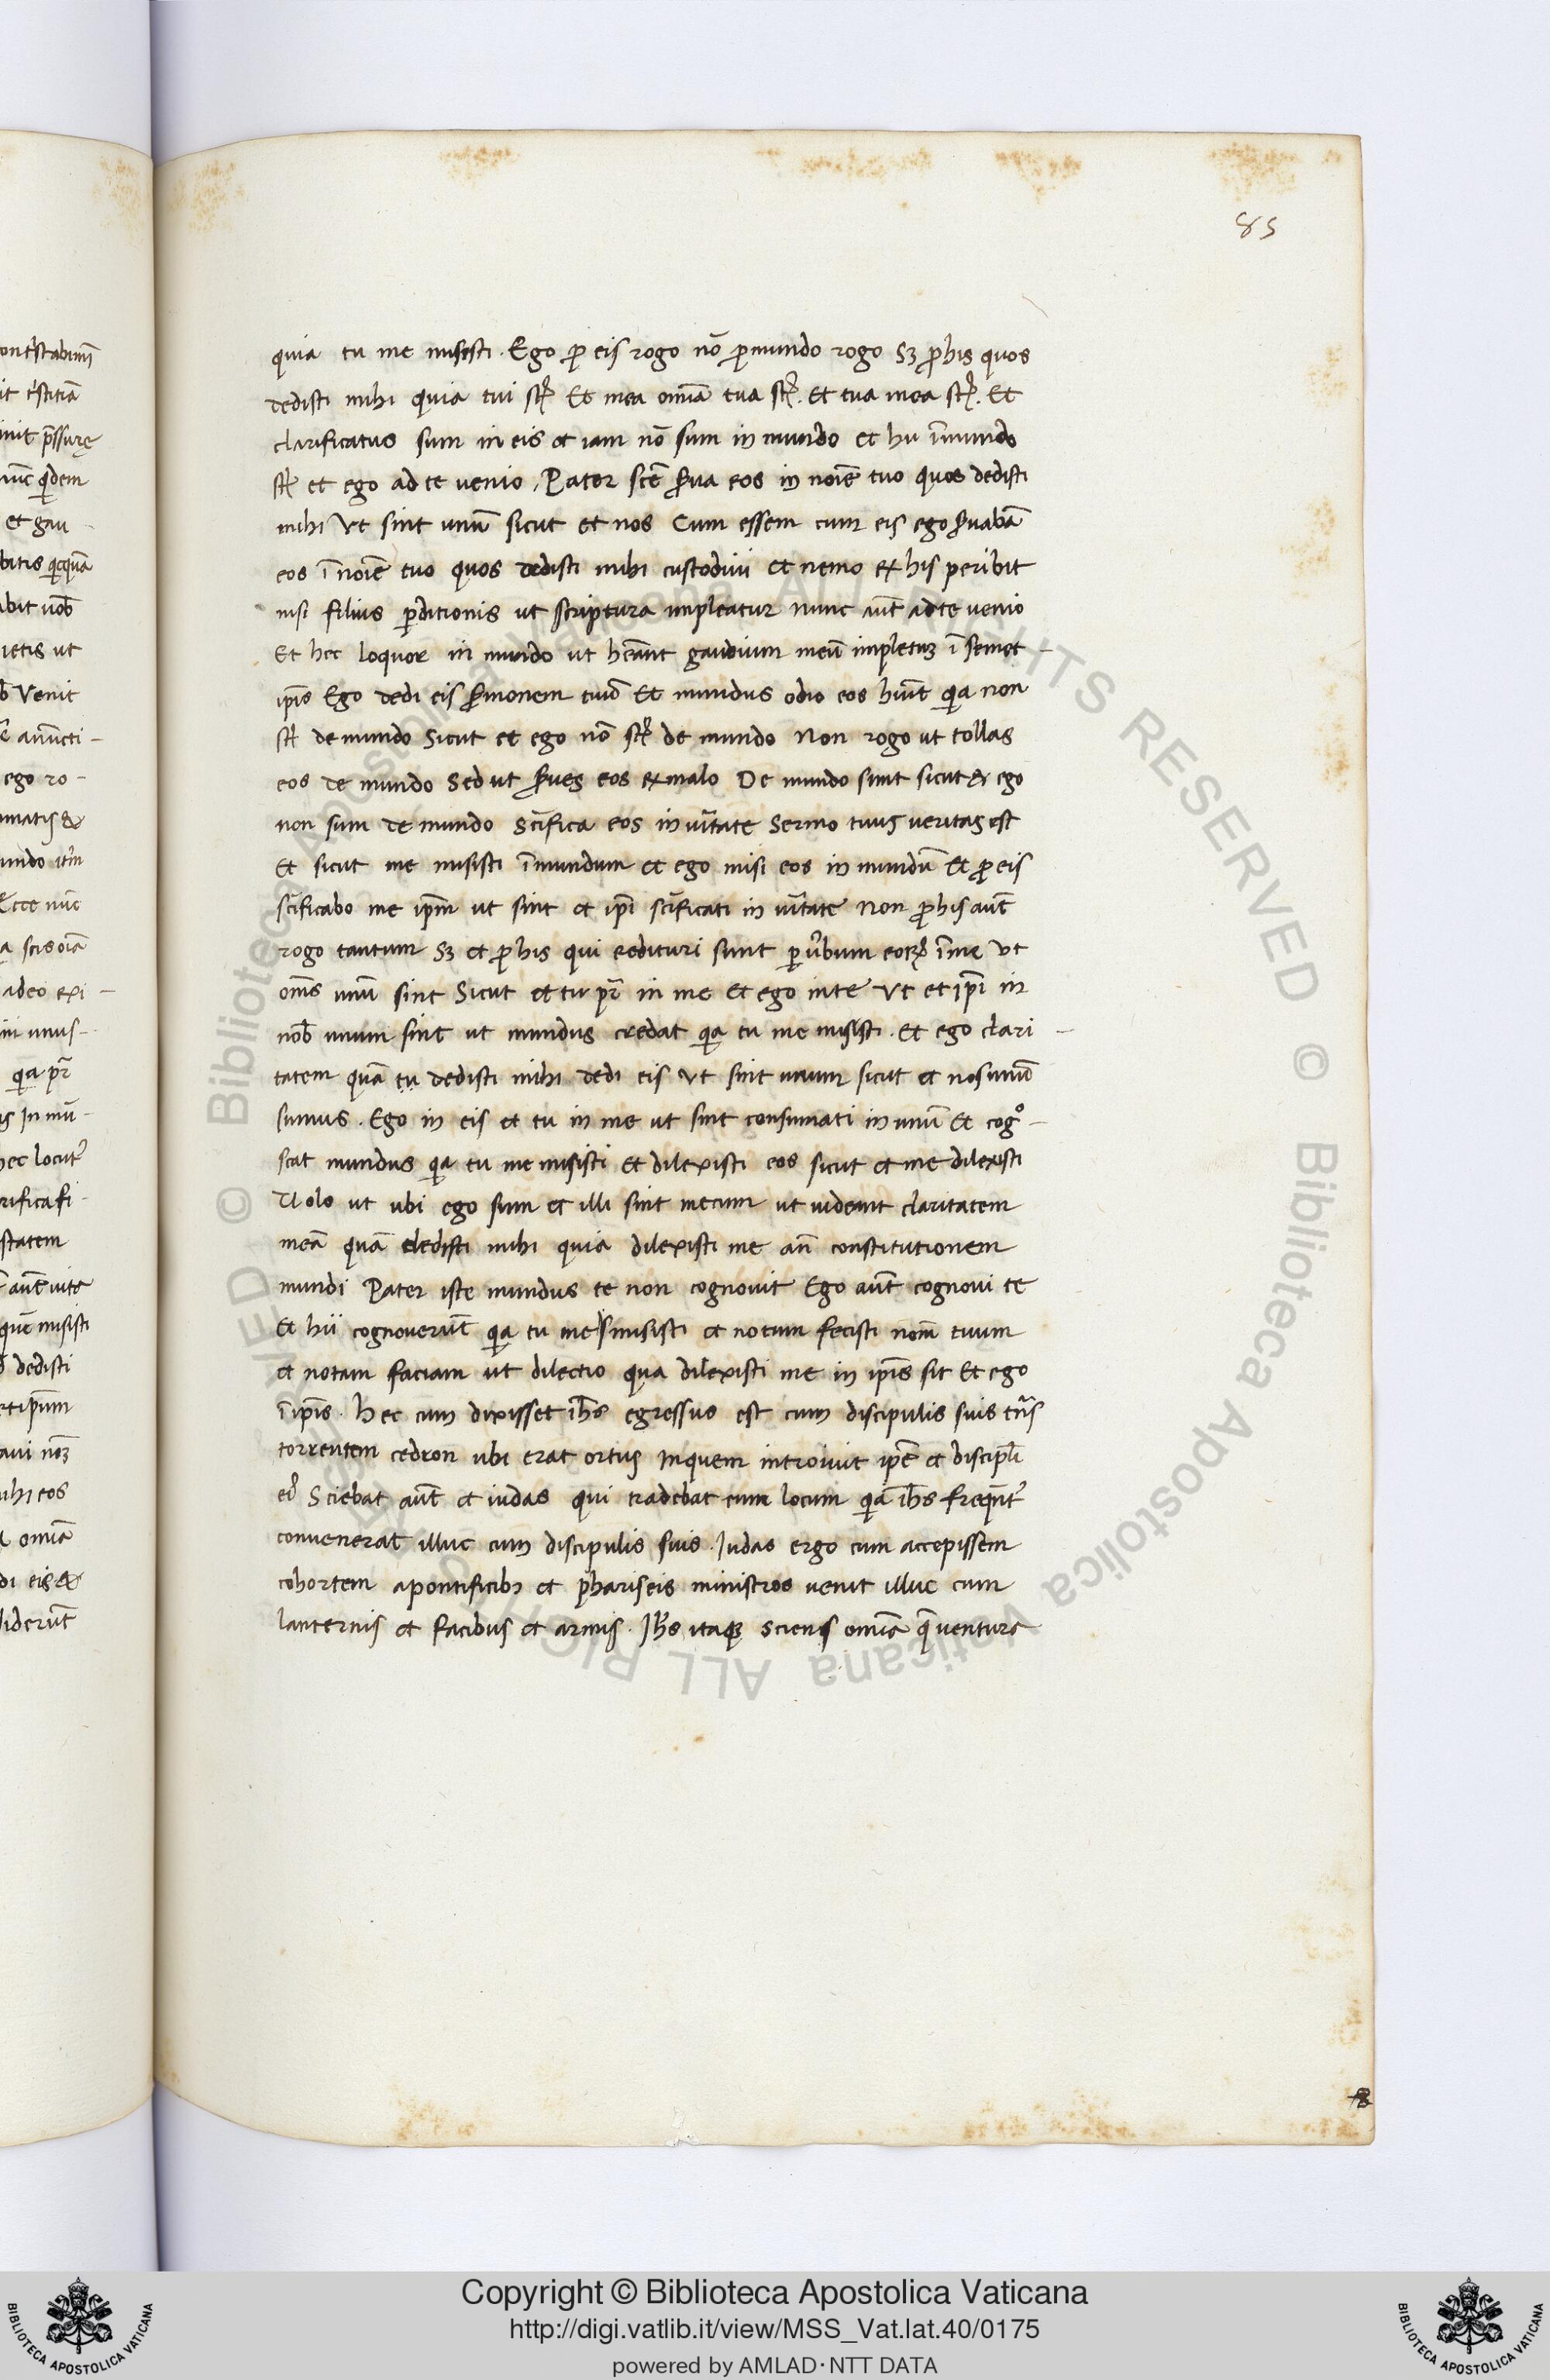 85
quia tu me misisti. Ego ꝓ eis rogo nō ꝓ mundo rogo Sʒ ꝓ his quos
dedisti mihi quia tui st̄ Et mea omīa tua st̄. Et tua mea st̄. Et
clarificatus sum in eis et iam nō sum in mundo et hii ī mundo
st̄ et ego ad te uenio. Pater scē s̄ua eos in noīe tuo quos dedisti
mihi Vt sint unū sicut et nos Cum essem cum eis ego s̄uabā
eos ī noīe tuo quos dedisti mihi custodiui et nemo ex his peribit
nisi filius ꝑditionis ut scriptura impleatur Nunc aūt ad te uenio
Et hec loquor in mundo ut hēant gaudium meū impletuʒ ī semet-
ip̄is Ego dedi eis s̄monem tuū Et mundus odio eos hūit qīa non
st̄ de mundo Sicut et ego nō st̄ de mundo Non rogo ut tollas
eos de mundo Sed ut s̄ues eos ex malo De mundo sunt sicut & ego
non sum de mundo Scīfica eos in ūitate Sermo tuus ueritas est
Et sicut me misisti ī mundum et ego misi eos in mundū Et ꝓ eis
scīficabo me ip̄m ut sint et ip̄i scīficati in ūitate Non ꝓ his aūt
rogo tantum Sʒ et ꝓ his qui credituri sunt ꝑ ūbum eoꝝ ī me Vt
om̄s unū sint Sicut et tu pr̄ in me Et ego in te Vt et ip̄i in
nob̄ unum sint ut mundus credat qīa tu me misisti. Et ego clari-
tatem quā tu dedisti mihi dedi eis Vt sint unum sicut et nos unū
sumus. Ego in eis et tu in me ut sint consumati in unū Et cogº-
scat mundus qīa tu me misisti Et dilexisti eos sicut et me dilexisti
Uolo ut ubi ego sum et illi sint mecum ut uideant claritatem
meā quā dedisti mihi quia dilexisti me an̄ constitutionem
mundi Pater iste mundus te non cognouit Ego aūt cognoui te
Et hii cognouerūt qīa tu me misisti et notum fecisti nom̄ tuum
et notam faciam ut dilectio qua dilexisti me in ip̄is sit Et ego
ī ip̄is. Hec cum dixisset ih̄s egressus est cum discipulis suis tn̄s
torrentem cedron ubi erat ortus In quem introiuit ip̄e et discipl̄i
eı̄ Sciebat aūt et iudas qui tradebat eum locum qīa ih̄s freqn̄t̄
conuenerat illuc cum discipulis suis. Iudas ergo cum accepissem
cohortem a pontificibʒ et phariseis ministros uenit illuc cum
lanternis et facibus et armis. Ih̄s itaqʒ sciens omīa q̄ uentura
ont̄stabimī
it t̄stitiā
init p̄ssurę
nūc qdem
et gau-
bitis qicquā
abit uob̄
ietis ut
Venit
anūcti-
ego ro-
amatis &
undo it̄m
Ecce nūc
scis oīa
a deo exi-
in unus-
qīa pr̄
In mū-
hec locut̄
rificasi-
statem
aūt uita
quē misisti
dedisti
ip̄sum
aui noʒ
ihi eos
omīa
di eis &
diderūt
Copyright © Biblioteca Apostolica Vaticana
http://digi.vatlib.it/view/MSS_Vat.lat.40/0175
powered by AMLAD·NTT DATA
BIBLIOTECA APOSTOLICA VATICANA
BIBLIOTECA APOSTOLICA VATICANA